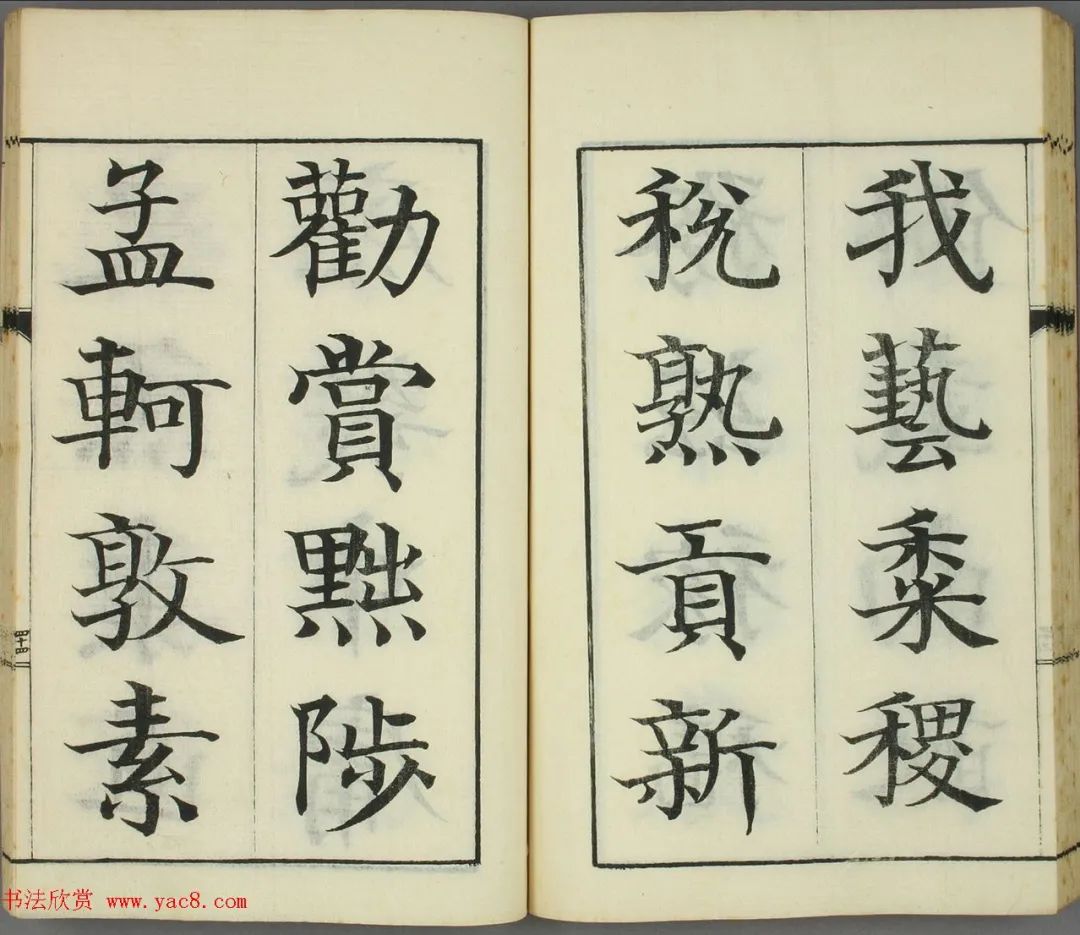 我藝黍稷
稅熟貢新
勸賞黜陟
孟軻敦素
書法欣赏 www.yac8.com